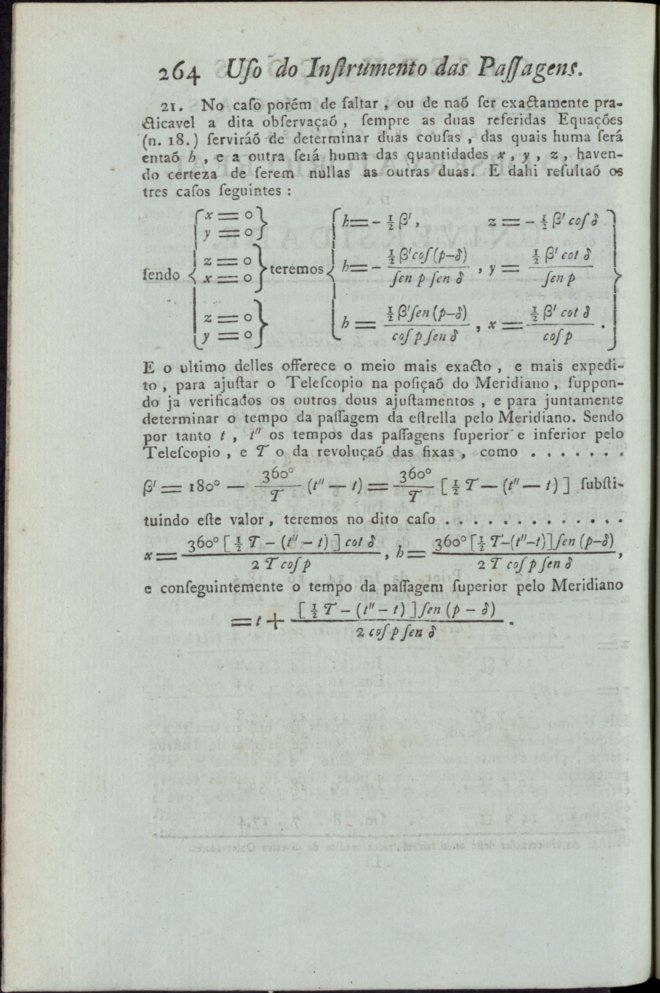 264 Uſo do Inſtrumento das Paſſagens.
21. No caſo porém de faltar , ou de naõ ſer exactamente pra-
cticavel a dita obſervaçaõ , ſempre as duas referidas Equações
(n. 18.) ſerviráõ de determinar duas couſas , das quais huma ſerá
entaõ h , e a outra ſerá huma das quantidades x , y , z , haven-
do certeza de ſerem nullas as outras duas. E dahi reſultaõ os
tres caſos ſeguintes :
ſendo { { x = 0 y = 0 } { z = 0 x = 0 } { z = 0 y = 0 } teremos
{ h = - ½ β' , z = - ½ β' coſ δ
h = - ½ β' coſ (p-δ) / ſen p ſen δ , y = ½ β' cot δ / ſen p
h = ½ β' ſen (p-δ) / coſ p ſen δ , x = ½ β' cot δ / coſ p . }
E o ultimo delles offerece o meio mais exacto , e mais expedi-
to , para ajuſtar o Teleſcopio na poſiçaõ do Meridiano , ſuppon-
do ja verificados os outros dous ajuſtamentos , e para juntamente
determinar o tempo da paſſagem da eſtrella pelo Meridiano. Sendo
por tanto t , t'' os tempos das paſſagens ſuperior e inferior pelo
Teleſcopio , e T o da revoluçaõ das fixas , como . . . . . . .
β' = 180° — 360° / T (t'' — t) = 360° / T [ ½ T — (t'' — t) ] ſubſti-
tuindo eſte valor , teremos no dito caſo . . . . . . . . . . . . .
x = 360° [ ½ T - (t'' - t) ] cot δ / 2 T coſ p , h = 360° [½ T-(t''-t)] ſen (p-δ) / 2 T coſ p ſen δ ,
e conſeguintemente o tempo da paſſagem ſuperior pelo Meridiano
= t + [ ½ T - (t'' - t) ] ſen (p - δ) / 2 coſ p ſen δ .